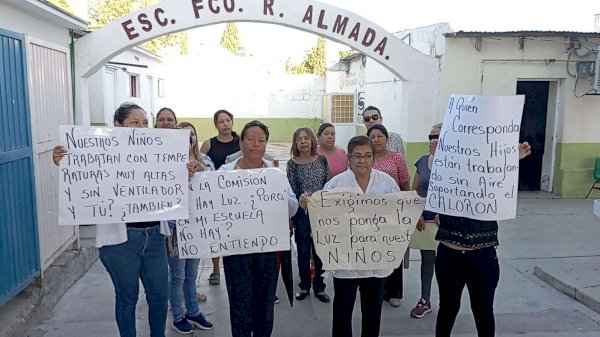 ESC. FCO. R. ALMADA.
NUESTROS NIÑOS
TRABATAN CON TEMPE
RATURAS MUY ALTAS
Y SIN VENTILADOR
Y TÚ? ¿TAMBIEN?
EN LA COMISIÓN
HAY LUZ ¿PORQ:
EN MI ESCUELA
NO HAY?
NO ENTIENDO
EXIGIMOS QUE
nos ponga la
LUZ para nuest
NIÑOS
A QUIÉN
Corresponda
NUESTROS HIJOS
están trabajan
do sin Aire
soportando el
CALORON